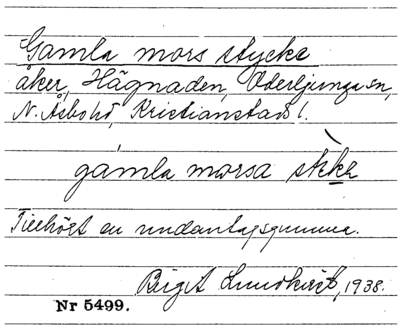 Gamla mors stycke
åker, Hägnaden, Oderljunga sn,
N. Åsbo hd, Kristianstads l.
gámla morsa
Tillhört en undantagsgumma.
Birgit Lundkvist, 1938.
Nr 5499.